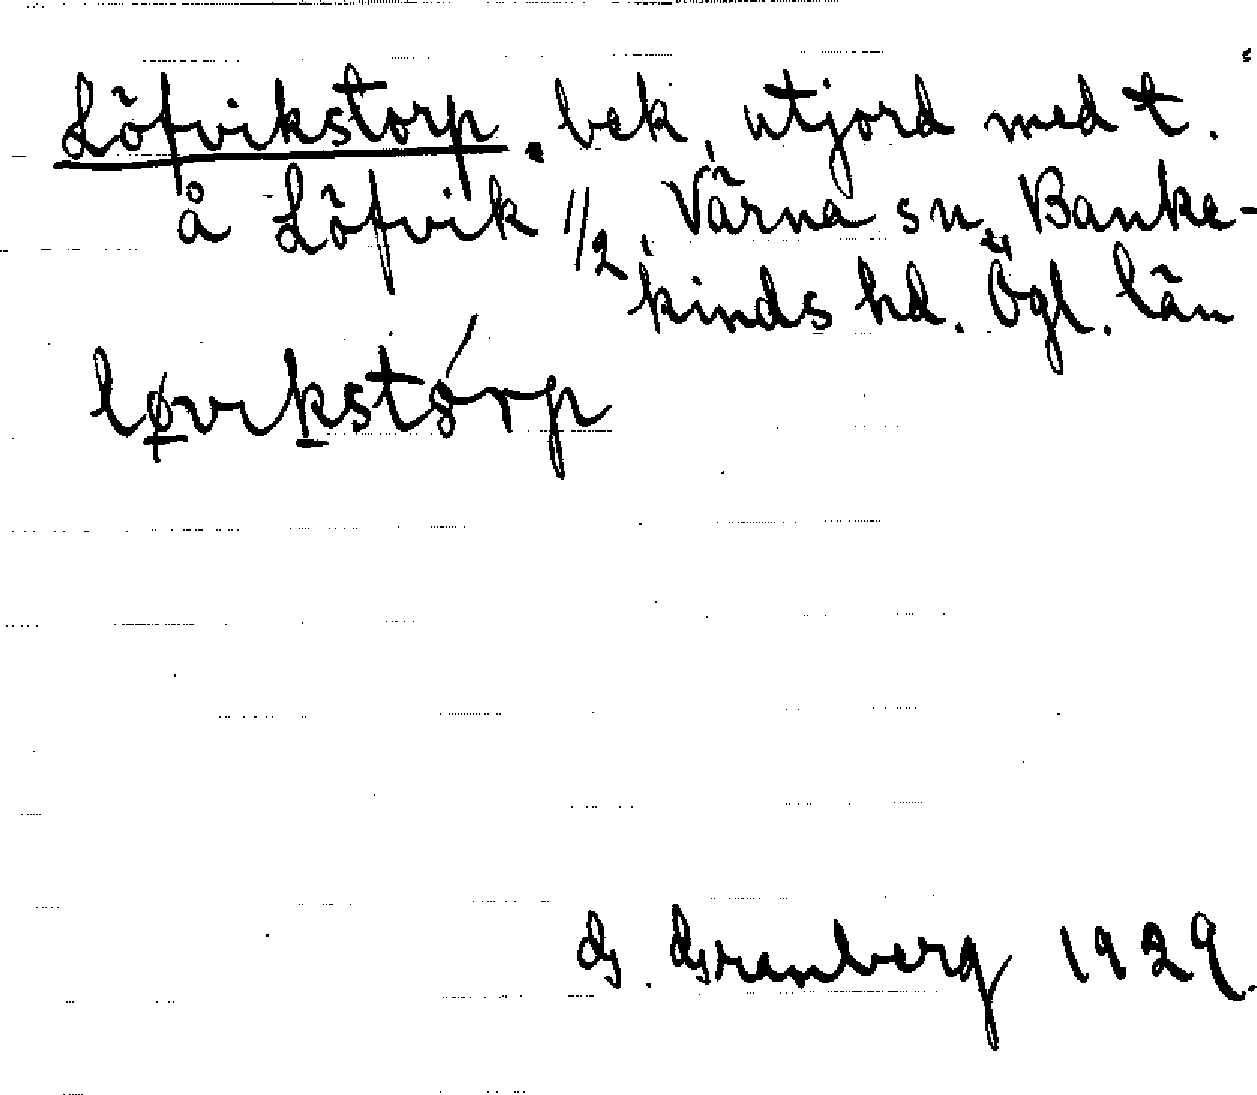 Löfvikstorp. bek. utjord med t.
å Löfvik 1/2, Värna sn, Banke-
kinds hd. Ögl. län
løvikstórp
G. Granberg 1929.